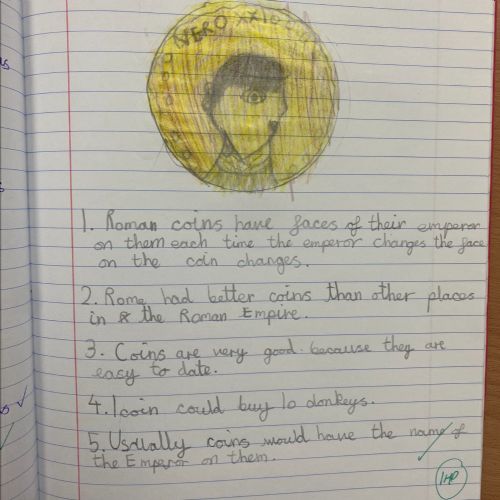 NERO XXIO
1. Roman coins have faces of their emperor
on them each time the emperor changes the face
on the coin changes.
2. Rome had better coins than other places
in & the Roman Empire.
3. Coins are very good because they are
easy to date.
4. 1 coin could buy 10 donkeys.
5. Usually coins would have the name of
the Emperor on them.
1HP